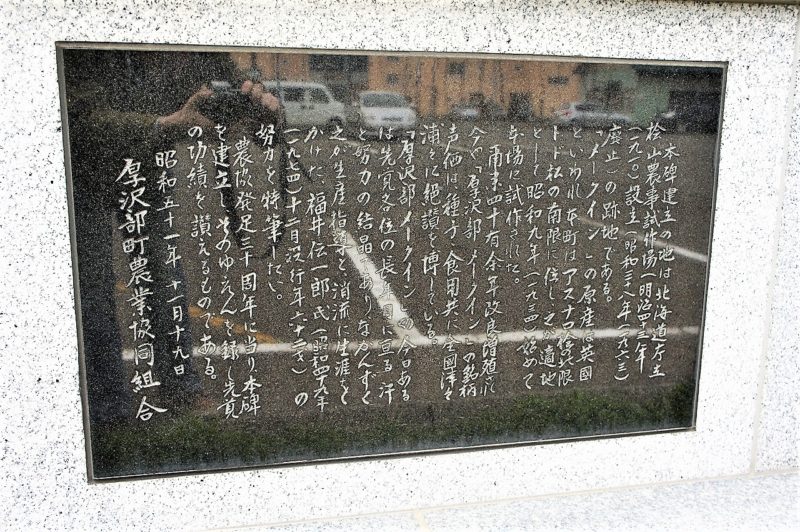 本碑建立の地は北海道庁立
桧山農事試作場(明治四三年
(一九一〇)設立(昭和三八年(一九六三)
廃止)の跡地である。
「メークイン」の原産は英国
といわれ本町はアスナロ檜の北限
トド松の南限に位し之が適地
として昭和九年(一九三四)始めて
本場に試作された。
爾来四十有余年改良増殖
今や「厚沢部メークイン」の銘柄
声価は種子、食用共に全國津々
浦々に絶讃を博している。
「厚沢部メークイン」の今日ある
は先覚各位の長年月に亘る汗
と努力の結晶でありなかんずく
之が生産指導と消流に生涯を
かけた、福井伝一郎氏(昭和四九年
(一九七四)十二月没行年六十二才)の
努力を特筆したい。
農協発足三十周年に当り本碑
を建立しそのゆえんを録し先覚
の功績を讃えるものである。
昭和五十一年十一月十九日
厚沢部町農業協同組合